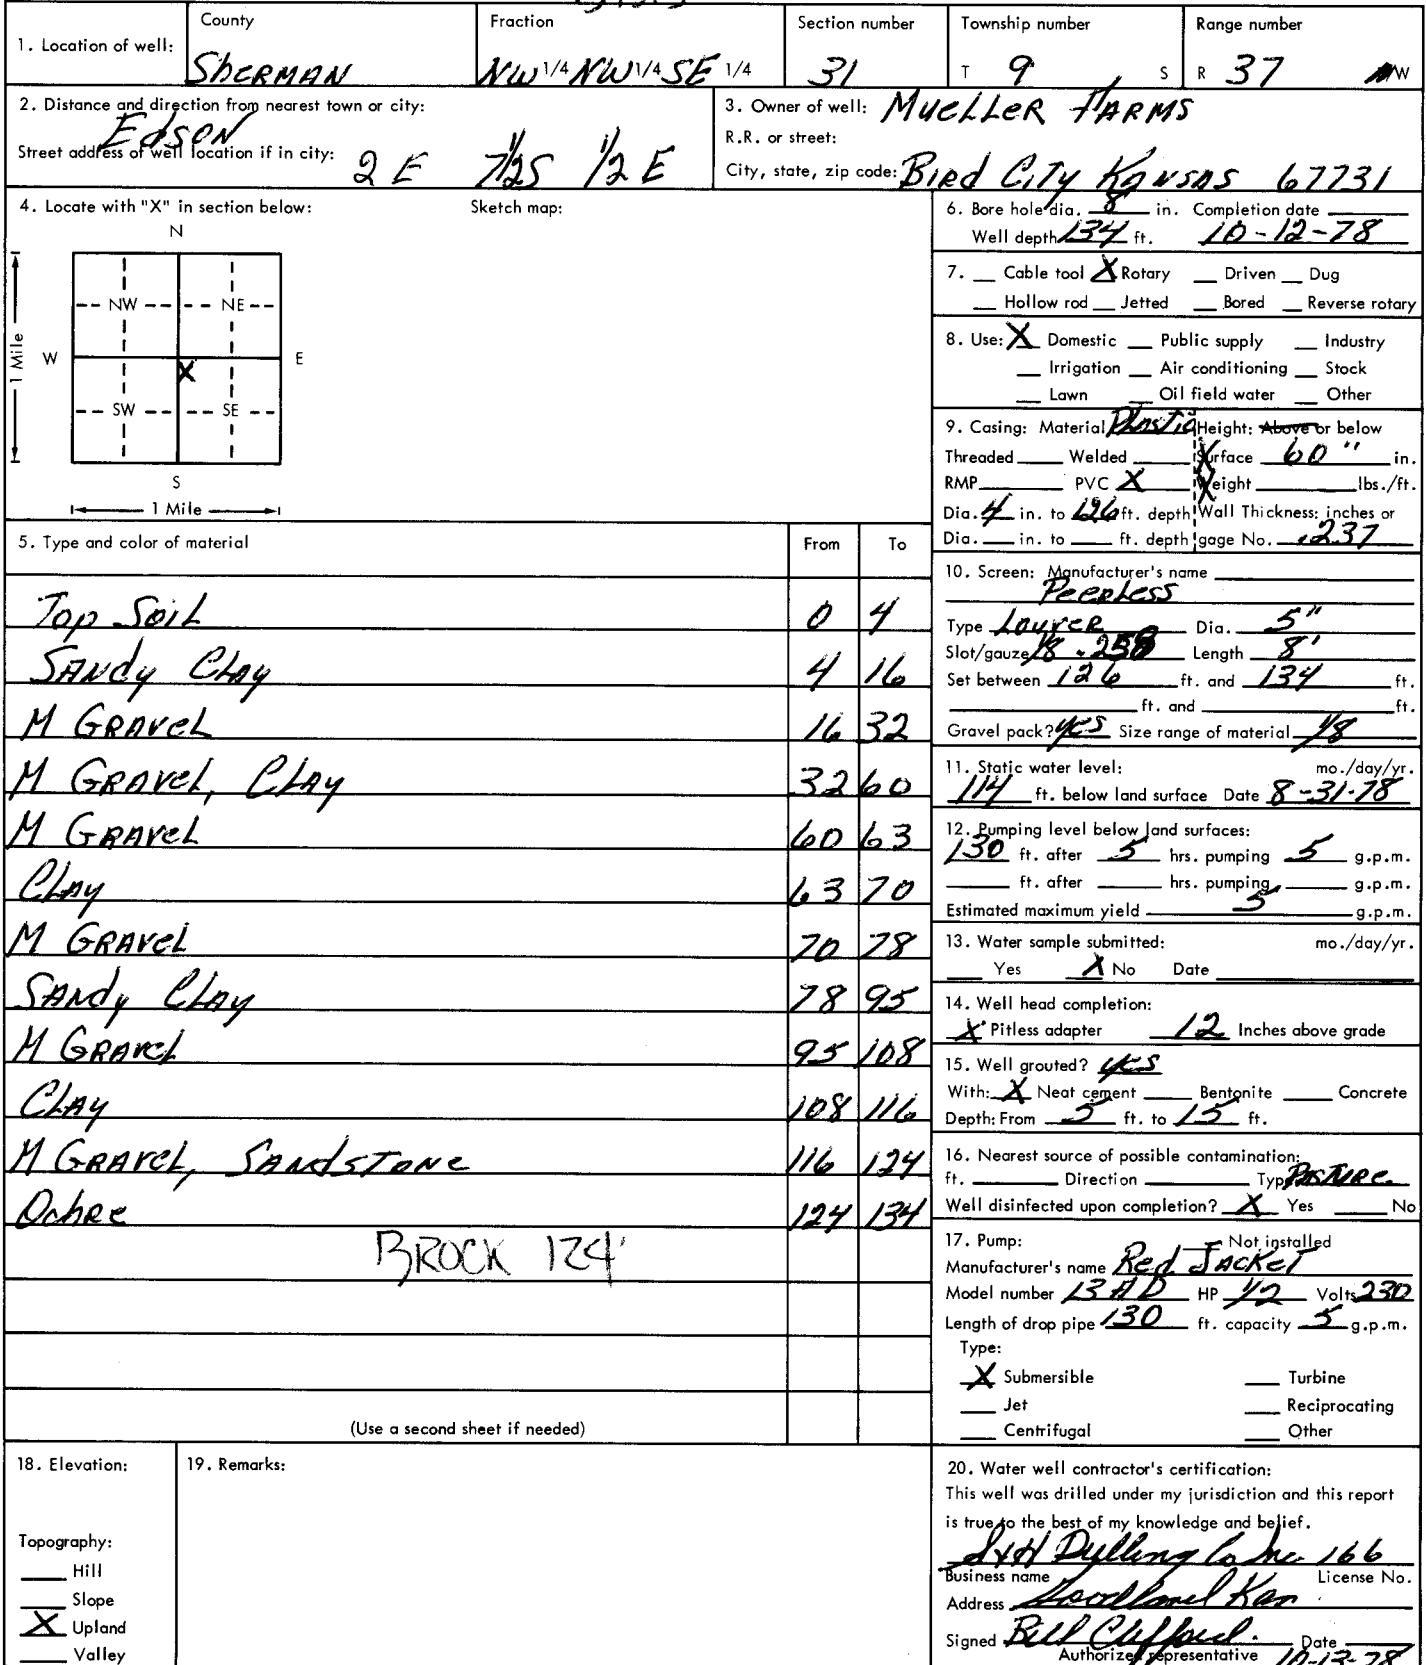 County Fraction Section number Township number Range number
1. Location of well: Sherman NW 1/4 NW 1/4 SE 1/4 31 T 9 S R 37 W
2. Distance and direction from nearest town or city: Edson
Street address of well location if in city: 2 E 7 1/2 S 1/2 E
3. Owner of well: Mueller Farms
R.R. or street:
City, state, zip code: Bird City Kansas 67731
4. Locate with "X" in section below: Sketch map:
N
NW NE
W X E
SW SE
S
1 Mile
1 Mile
5. Type and color of material From To
Top Soil 0 4
Sandy Clay 4 16
M Gravel 16 32
M Gravel, Clay 32 60
M Gravel 60 63
Clay 63 70
M Gravel 70 78
Sandy Clay 78 95
M Gravel 95 108
Clay 108 116
M Gravel, Sandstone 116 124
Ochre 124 134
BROCK 124'
(Use a second sheet if needed)
6. Bore hole dia. 8 in. Completion date
Well depth 134 ft. 10-12-78
7. __ Cable tool X Rotary __ Driven __ Dug
__ Hollow rod __ Jetted __ Bored __ Reverse rotary
8. Use: X Domestic __ Public supply __ Industry
__ Irrigation __ Air conditioning __ Stock
__ Lawn __ Oil field water __ Other
9. Casing: Material Plastic Height: Above or below
Threaded __ Welded __ Surface 60" in.
RMP __ PVC X Weight __ lbs./ft.
Dia. 4 in. to 126 ft. depth Wall Thickness: inches or
Dia. __ in. to __ ft. depth gage No. .237
10. Screen: Manufacturer's name
Peerless
Type Louver Dia. 5"
Slot/gauze 1/8 Length 8'
Set between 126 ft. and 134 ft.
__ ft. and __ ft.
Gravel pack? yes Size range of material 1/8
11. Static water level: mo./day/yr.
114 ft. below land surface Date 8-31-78
12. Pumping level below land surfaces:
130 ft. after 5 hrs. pumping 5 g.p.m.
__ ft. after __ hrs. pumping __ g.p.m.
Estimated maximum yield 5 g.p.m.
13. Water sample submitted: mo./day/yr.
__ Yes X No Date
14. Well head completion:
X Pitless adapter 12 Inches above grade
15. Well grouted? yes
With: X Neat cement __ Bentonite __ Concrete
Depth: From 5 ft. to 15 ft.
16. Nearest source of possible contamination:
ft. __ Direction __ Type Pasture
Well disinfected upon completion? X Yes __ No
17. Pump: __ Not installed
Manufacturer's name Red Jacket
Model number 13 AD HP 1/2 Volts 230
Length of drop pipe 130 ft. capacity 5 g.p.m.
Type:
X Submersible __ Turbine
__ Jet __ Reciprocating
__ Centrifugal __ Other
18. Elevation:
Topography:
__ Hill
__ Slope
X Upland
__ Valley
19. Remarks:
20. Water well contractor's certification:
This well was drilled under my jurisdiction and this report
is true to the best of my knowledge and belief.
Co Inc. 166
Business name License No.
Address Goodland Kan
Signed Bill Clifford. Date
Authorized representative 10-13-78